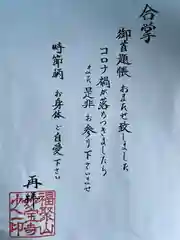 合掌
御首題帳
おまたせ致しました
コロナ禍が落ちつきましたら
また是非お参り下さいませ
時節柄
お身体ご自愛下さい
再拝